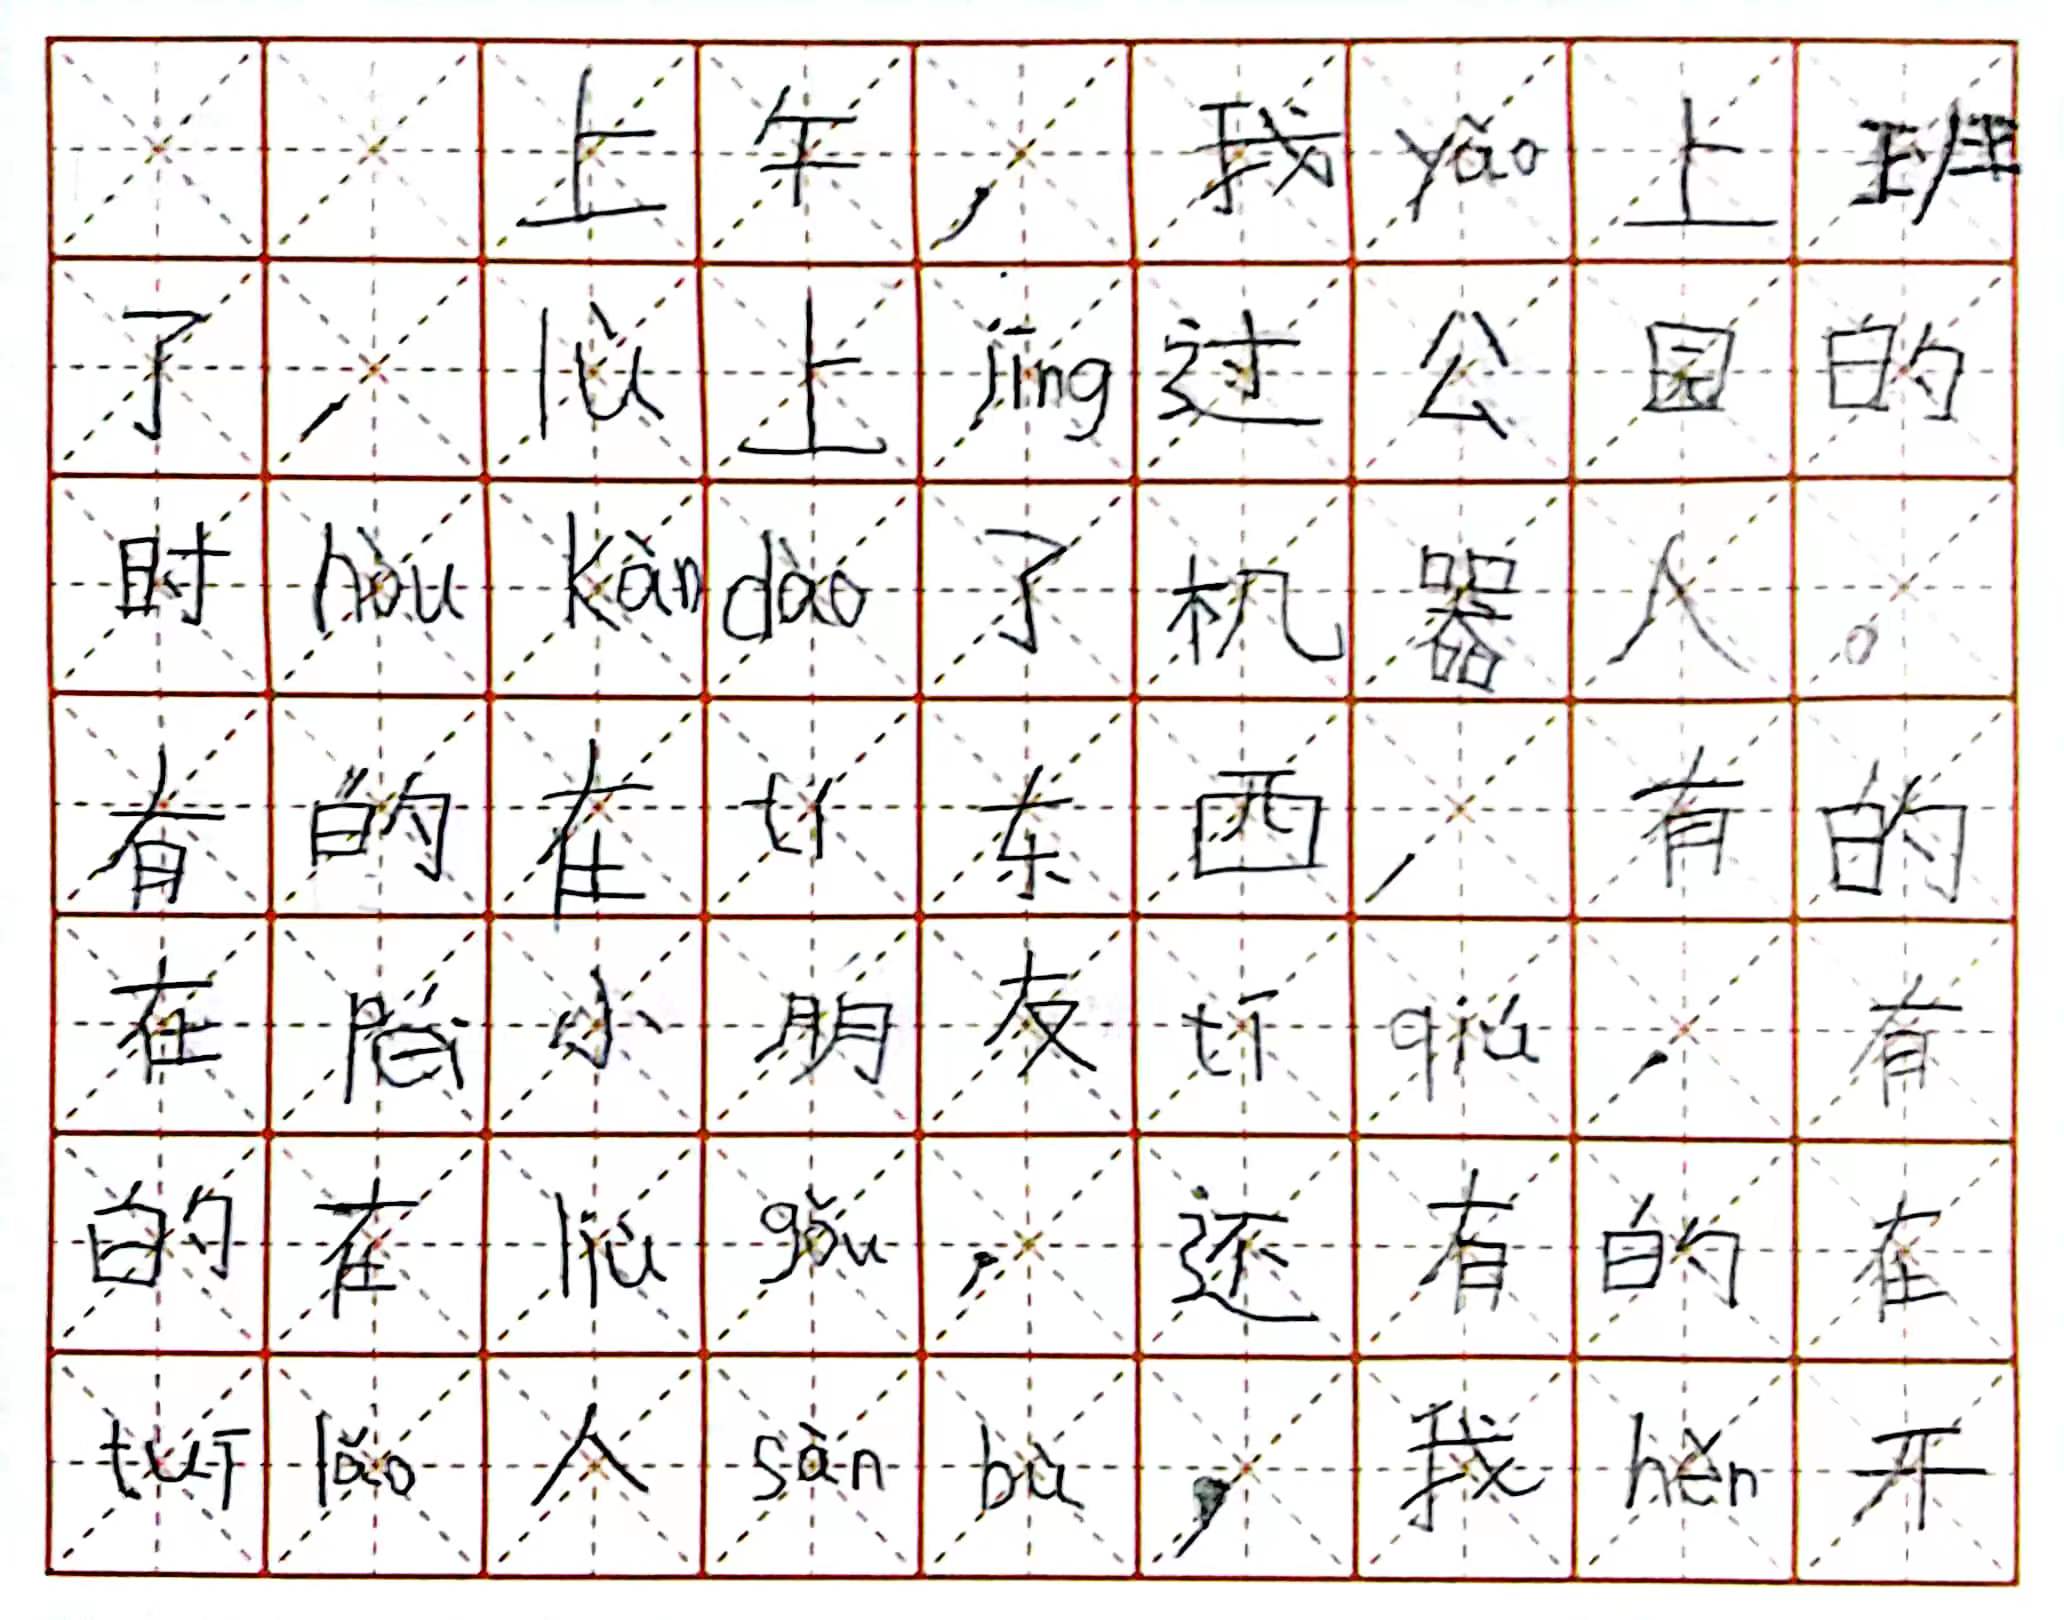 上午，我yǎo上班
了，lù上jīng过公园的
时hòukàndào了机器人。
有的在tí东西，有的
在péi小朋友tī qiú，有
的在liù gǒu，还有的在
tuī lǎo人sàn bù，我hěn开